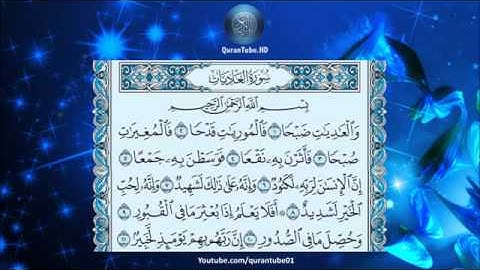 QuranTube.HD
سُورَةُ العَادِيَات
بِسْمِ اللَّهِ الرَّحْمَٰنِ الرَّحِيمِ
وَالْعَادِيَاتِ ضَبْحًا ١ فَالْمُورِيَاتِ قَدْحًا ٢ فَالْمُغِيرَاتِ
صُبْحًا ٣ فَأَثَرْنَ بِهِ نَقْعًا ٤ فَوَسَطْنَ بِهِ جَمْعًا ٥
إِنَّ الْإِنسَانَ لِرَبِّهِ لَكَنُودٌ ٦ وَإِنَّهُ عَلَىٰ ذَٰلِكَ لَشَهِيدٌ ٧ وَإِنَّهُ لِحُبِّ
الْخَيْرِ لَشَدِيدٌ ٨ أَفَلَا يَعْلَمُ إِذَا بُعْثِرَ مَا فِي الْقُبُورِ ٩
وَحُصِّلَ مَا فِي الصُّدُورِ ١٠ إِنَّ رَبَّهُم بِهِمْ يَوْمَئِذٍ لَّخَبِيرٌ ١١
Youtube.com/qurantube01